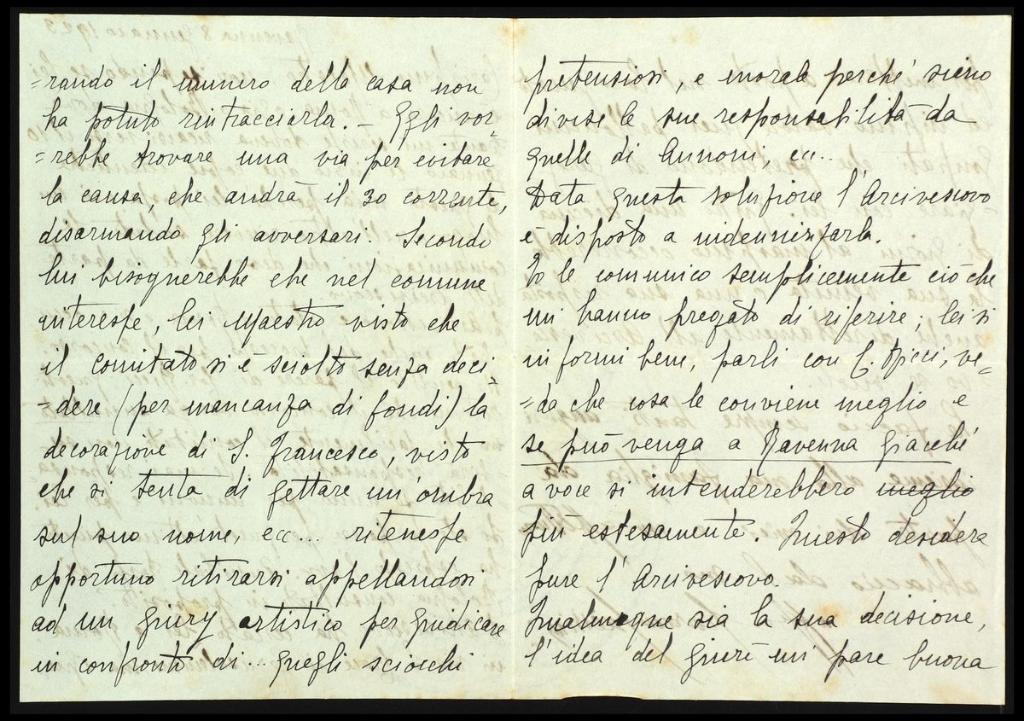 =rando il numero della casa non
ha potuto rintracciarla. – Egli vor-
=rebbe trovare una via per evitare
la causa, che andrà il 30 corrente,
disarmando gli avversari. Secondo
lui bisognerebbe che nel comune
interesse, lei Maestro visto che
il comitato si è sciolto senza deci-
=dere (per mancanza di fondi) la
decorazione di S. Francesco, visto
che si tenta di gettare un'ombra
sul suo nome, ecc... ritenesse
opportuno ritirarsi appellandosi
ad un giury artistico per giudicare
in confronto di... quegli sciocchi
pretensiosi, e morale perché sieno
divise le sue responsabilità da
quelle di Annoni ecc..
Data questa soluzione l'Arcivescovo
è disposto a indennizzarla.
Io le comunico semplicemente ciò che
mi hanno pregato di riferire; lei si
informi bene, parli con C. Ricci, ve-
=da che cosa le conviene meglio e
se può venga a Ravenna giacché
a voce si intenderebbero meglio
più estesamente. Questo desidera
pure l'Arcivescovo.
Qualunque sia la sua decisione,
l'idea del giurì mi pare buona